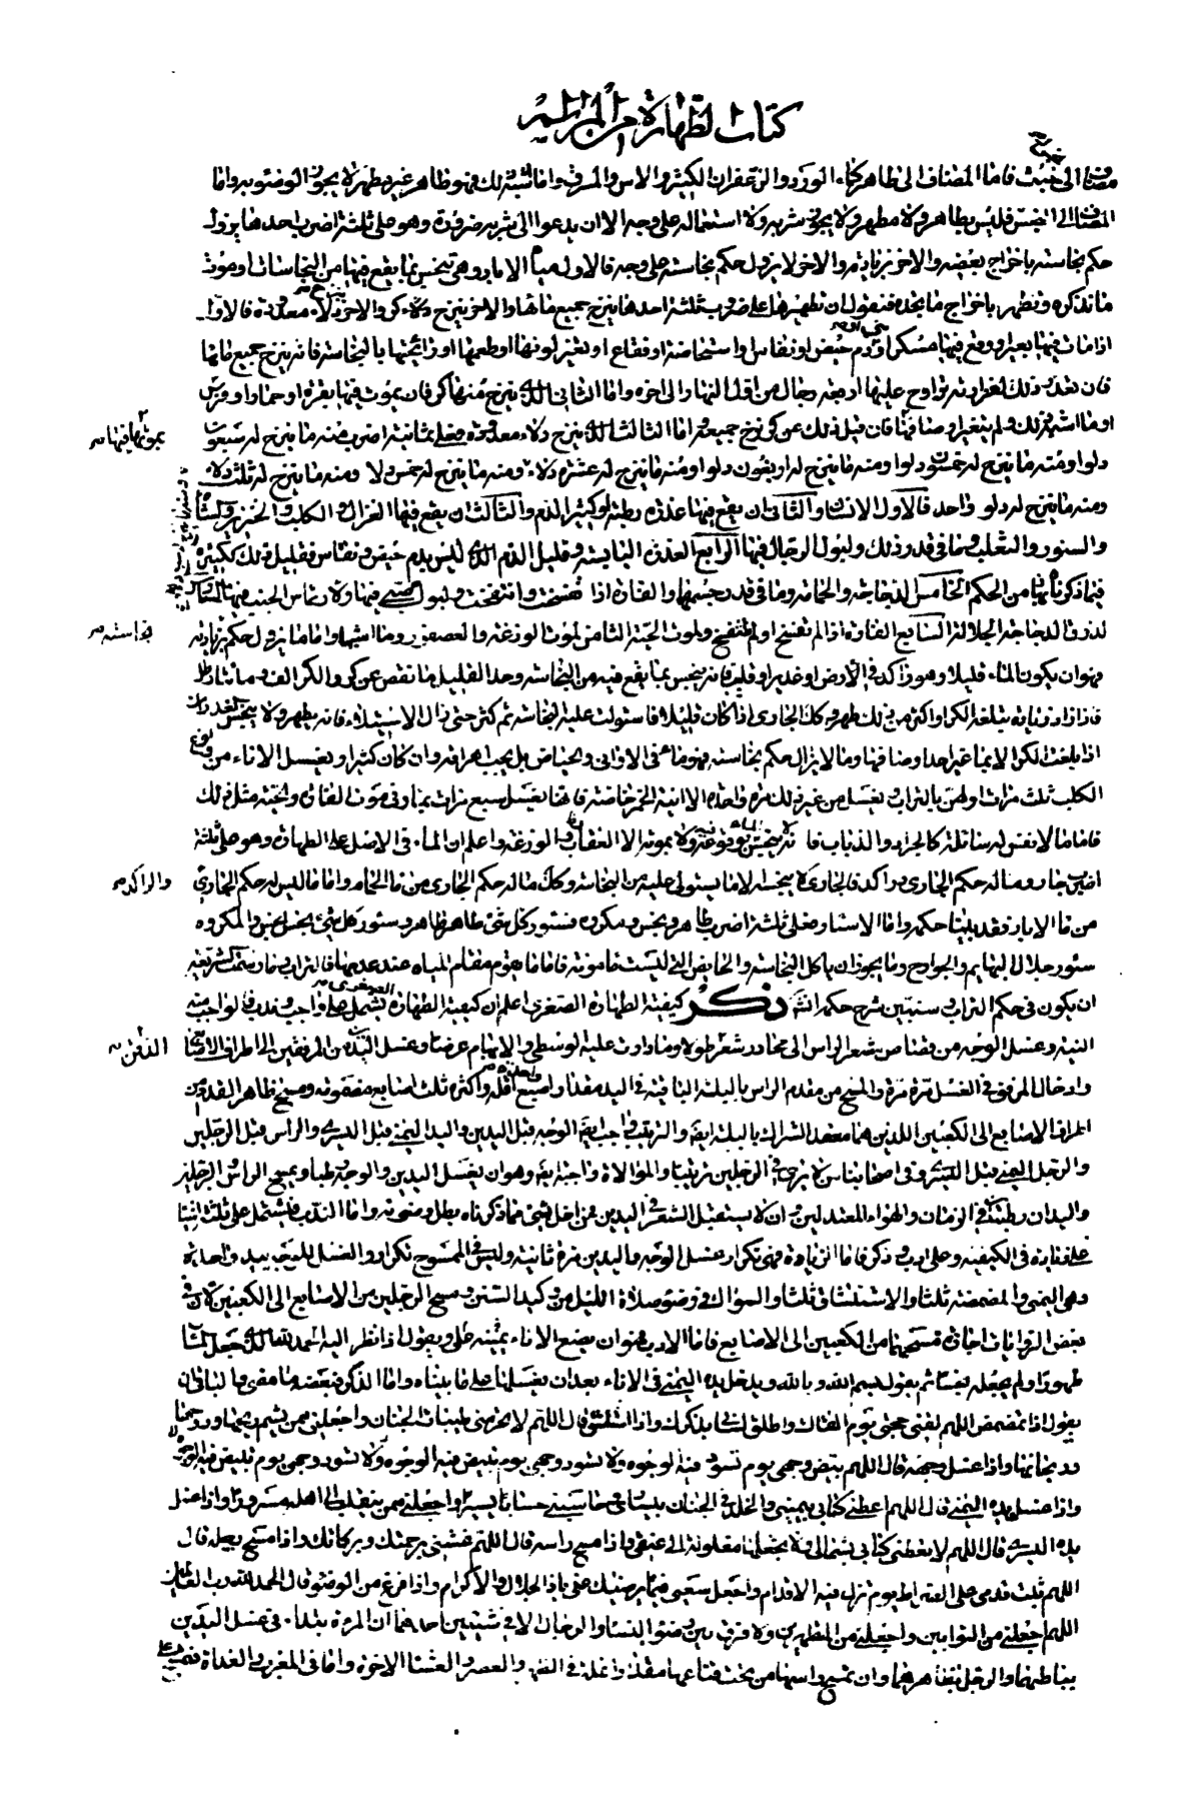 كتاب الطهارة من المراسم
مضاف الى نجس فاما المضاف الى طاهر كماء الورد والزعفران الكثير والاس والمرق وما اشبه ذلك فهو طاهر غير مطهر لا يجوز الوضوء به واما
المضاف الى النجس فليس بطاهر ولا مطهر ولا يجوز شربه ولا استعماله على وجه الا ان يدعوا الى شربه ضرورة وهو على ثلثة اضرب احدها يزول
حكم نجاسته باخراج بعضه والاخر بزيادته والاخر لا يزول حكم نجاسته على وجه فالاول مياه الابار وهي تنجس بما يقع فيها من النجاسات او موت
ما نذكره وتطهر باخراج ما نحده فنقول ان تطهيرها على ضروب ثلثة احدها ينزح جميع مائها والاخر ينزح كر والاخر ينزح دلاء معدودة فالاول
اذا مات فيها بعير او وقع فيها مسكر او دم حيض او نفاس او استحاضة او فقاع او تغير لونها او طعمها او رائحتها بالنجاسة فانه ينزح جميع مائها
فان تعذر ذلك لغزارته تراوح عليها اربعة رجال من اول النهار الى اخره واما الثانى الذى ينزح منها كر فان يموت فيها بقرة او حمار او فرس
او ما اشبه ذلك ولم يتغير اوصافها فان قيل ذلك عن كر نزح جميعه واما الثالث الذى ينزح دلاء معدودة فعلى ثمانية اضرب منه ما ينزح له سبعون
بموتها فيها
دلوا ومنه ما ينزح له خمسون دلوا ومنه ما ينزح له اربعون دلوا ومنه ما ينزح له عشرة دلاء ومنه ما ينزح له خمس دلا ومنه ما ينزح له ثلث دلاء
ومنه ما ينزح له دلو واحد فالاول الانسان والثانى ان يقع فيها عذرة رطبة او كثير الدم والثالث ان يقع فيها الغزال والكلب والخنزير والشاة
والسنور والثعلب وما فى قدر ذلك ولبول الرجال فيها الرابع العذرة اليابسة وقليل الدم الذى ليس بدم حيض ونفاس فقليل ذلك ككثيره
فيما ذكرناه من الحكم الخامس للدجاجة والحمامة وما فى قدر جسمها والفارة اذا تفسخت وانتفخت ولبول الصبي فيها ولارتماس الجنب فيها السادس
لذرق الدجاجة الجلالة السابع الفارة اذا لم تفسخ او لم تنتفخ ولموت الحية الثامن لموت الوزغة والعصفور وما اشبهها واما ما يزول حكم بزيادته
نجاسته
فهو ان يكون الماء قليلا وهو راكد فى الارض او غدير او قليب فانه ينجس بما يقع فيه من النجاسة وحد القليل ما نقص عن كر والكر الف ومائتا رطل
فاذا زاد زيادة تبلغه الكر او اكثر من ذلك طهر وكل الجارى اذا كان قليلا فاستولت عليه النجاسة ثم كثر حتى زال الاستيلاء فانه يطهر ولا ينجس الغدران
اذا بلغت الكر الا بما غير احد اوصافها وما لا يزال حكم نجاسته فهو ماء فى الاوانى والحياض بل يجب اهراقه وان كان كثيرا ويغسل الاناء من ولوغ
الكلب ثلث مرات اولهن بالتراب ويغسل من غير ذلك مرة واحدة الا انية الخمر خاصة فانها تغسل سبع مرات بماء وفى موت الفارة والحية مثل ذلك
فاما ما لا نفس له سائلة كالجراد والذباب فانه لا ينجس الماء بوقوعه ولا بموته الا العقارب والوزغة واعلم ان الماء فى الاصل على الطهارة وهو على ثلثة
اضرب جار وماله حكم الجارى وراكد فالجارى لا ينجسه الا ما يستولى عليه من النجاسة وكل ماله حكم الجارى من ماء الحمام واما ما ليس له حكم الجارى
والراكد
من ماء الابار فقد بينا حكمه واما الاسئار فعلى ثلثة اضرب طاهر ونجس ومكروه فسئور كل شئ طاهر طاهر وسئور كل شئ نجس نجس والمكروه
سئور جلال البهايم والجوارح وما يجوز ان ياكل النجاسة والحايض التى ليست مامونة فاما ما يقوم مقام المياه عند عدمها فالتراب
ان يكون فى حكم التراب وسنبين شرح حكمه انشاء الله ذكر كيفية الطهارة الصغرى اعلم ان كيفية الطهارة الصغرى يشتمل على واجب وندب فالواجب منه
النية وغسل الوجه من قصاص شعر الراس الى محادر شعر الذقن طولا وما دارت عليه الوسطى والابهام عرضا وغسل اليدين من المرفقين الى اطراف الاصابع
الذقن
وادخال المرفق فى الغسل مرة مرة والمسح من مقدم الراس بالبلة الباقية فى اليد مقدار اصبع اقله واكثره ثلث اصابع مضمومة ومسح ظاهر القدمين من
اطراف الاصابع الى الكعبين اللذين هما معقد الشراك بالبلة ايضا والترتيب واجب ايضا الوجه قبل اليدين واليد اليمنى قبل اليسرى والراس قبل الرجلين
والرجل اليمنى قبل اليسرى وفى اصحابنا من لا يرى فى الرجلين ترتيبا والموالاة واجبة ايضا وهو ان يغسل اليدين والوجه رطب ويمسح الراس والرجلين
واليدان رطبتان فى الزمان والهواء المعتدلين وان لا يستقبل الشعر فى اليدين فمن اخل بشئ مما ذكرناه بطل وضوئه واما الندب فيشتمل على ثلث اشياء
على زيادة فى الكيفية وعلى ادب وذكر فاما الزيادة فهى تكرار غسل الوجه واليدين مرة ثانية وليس فى الممسوح تكرار والغسل للوجه بيد واحدة
وهى اليمنى والمضمضة ثلثا والاستنشاق ثلثا والسواك فى وضوء صلاة الليل من وكيد السنن ومسح الرجلين من الاصابع الى الكعبين لان فى
بعض الروايات اجازة مسحهما من الكعبين الى الاصابع فاما الادب فهو ان يضع الاناء بيمينه ويقول اذا نظر اليه الحمد لله الذى جعل الماء
طهورا ولم يجعله نجسا ثم يقول بسم الله وبالله ويدخل يده اليمنى فى الاناء بعد ان يغسلها على ما بيناه واما الذكر فبعضه ما مضى والباقى ان
يقول اذا تمضمض اللهم لقنى حجتى يوم القاك واطلق لسانى بذكرك واذا استنشق قال اللهم لا تحرمنى طيبات الجنان واجعلنى ممن يشم ريحها وروحها
وريحانها واذا غسل وجهه قال اللهم بيض وجهى يوم تسود فيه الوجوه ولا تسود وجهى يوم تبيض فيه الوجوه
واذا غسل يده اليمنى قال اللهم اعطنى كتابى بيمينى والخلد فى الجنان بيسارى وحاسبنى حسابا يسيرا واجعلنى ممن ينقلب الى اهله مسرورا واذا غسل
يده اليسرى قال اللهم لا تعطنى كتابى بشمالى ولا تجعلها مغلولة الى عنقى واذا مسح راسه قال اللهم غشنى برحمتك وبركاتك واذا مسح رجليه قال
اللهم ثبت قدمى على الصراط يوم تزل فيه الاقدام واجعل سعيى فيما يرضيك عنى ياذا الجلال والاكرام واذا فرغ من الوضوء قال الحمد لله رب العالمين
اللهم اجعلنى من التوابين واجعلنى من المتطهرين ولا فرق بين وضوء النساء والرجال الا فى شيئين احدهما ان المرءة تبتدا فى غسل اليدين
بباطنهما والرجل بظاهرهما وان تمسح راسها من تحت قناعها مقدار انملة فى الظهر والعصر والعشاء الاخرة واما فى المغرب والغداة